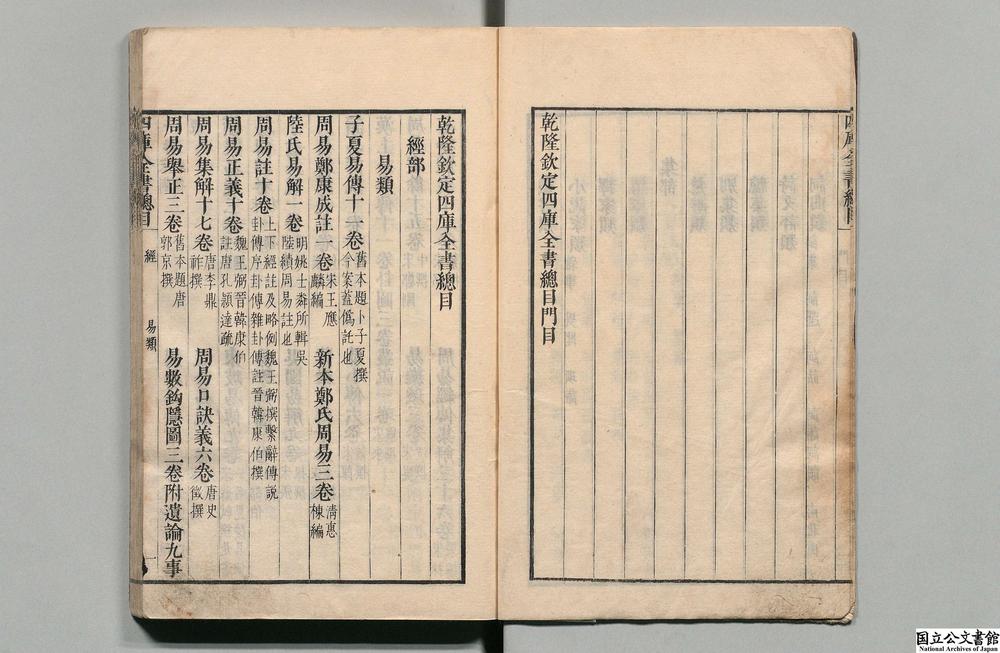 乾隆欽定四庫全書總目門目
乾隆欽定四庫全書總目
經部
易類
子夏易傳十一卷 舊本題卜子夏撰今案蓋僞託也
周易鄭康成註一卷 宋王應麟編 新本鄭氏周易三卷 淸惠棟編
陸氏易解一卷 明姚士粦所輯吳陸績周易註也
周易註十卷 上下經註及略例魏王弼撰繫辭傳說卦傳序卦傳雜卦傳註晉韓康伯撰
周易正義十卷 魏王弼晉韓康伯註唐孔穎達疏
周易集解十七卷 唐李鼎祚撰 周易口訣義六卷 唐史徵撰
周易舉正三卷 舊本題唐郭京撰 易數鈎隱圖三卷附遺論九事
四庫全書總目 經 易類 一
国立公文書館
National Archives of Japan